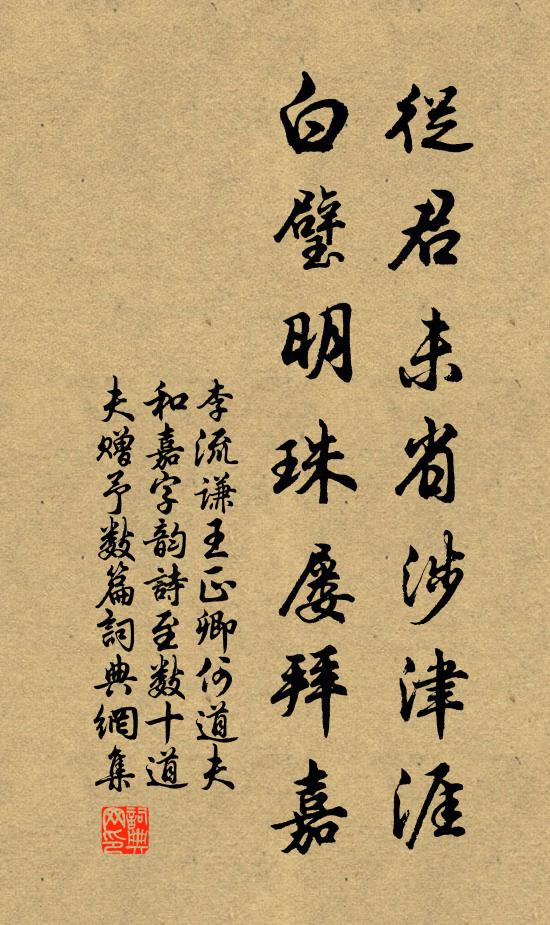 從君未省涉津涯
白璧明珠屢拜嘉
李流謙王正卿何道夫
和嘉字韵詩至數十道
夫贈予數篇詞典網集
詞典
网印